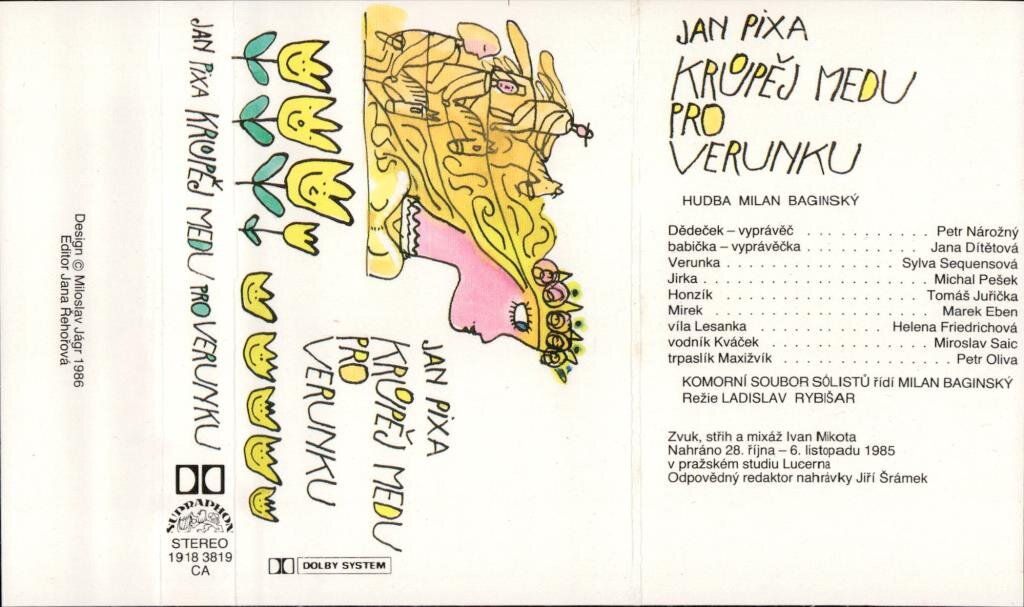 Design © Miloslav Jágr 1986
Editor Jana Řehořová
JAN PIXA KRŮPĚJ MEDU PRO VERUNKU
SUPRAPHON
STEREO
1918 3819
CA
JAN PIXA
KRŮPĚJ MEDU
PRO
VERUNKU
DOLBY SYSTEM
JAN PIXA
KRŮPĚJ MEDU
PRO
VERUNKU
HUDBA MILAN BAGINSKÝ
Dědeček – vyprávěč . . . . . . . . . . . . Petr Nárožný
babička – vyprávěčka . . . . . . . . . . . Jana Dítětová
Verunka . . . . . . . . . . . . . . . . Sylva Sequensová
Jirka . . . . . . . . . . . . . . . . . . . . Michal Pešek
Honzík . . . . . . . . . . . . . . . . . . Tomáš Juřička
Mirek . . . . . . . . . . . . . . . . . . . . Marek Eben
víla Lesanka . . . . . . . . . . . . . Helena Friedrichová
vodník Kváček . . . . . . . . . . . . . . . Miroslav Saic
trpaslík Maxižvík . . . . . . . . . . . . . . . Petr Oliva
KOMORNÍ SOUBOR SÓLISTŮ řídí MILAN BAGINSKÝ
Režie LADISLAV RYBIŠAR
Zvuk, střih a mixáž Ivan Mikota
Nahráno 28. října – 6. listopadu 1985
v pražském studiu Lucerna
Odpovědný redaktor nahrávky Jiří Šrámek